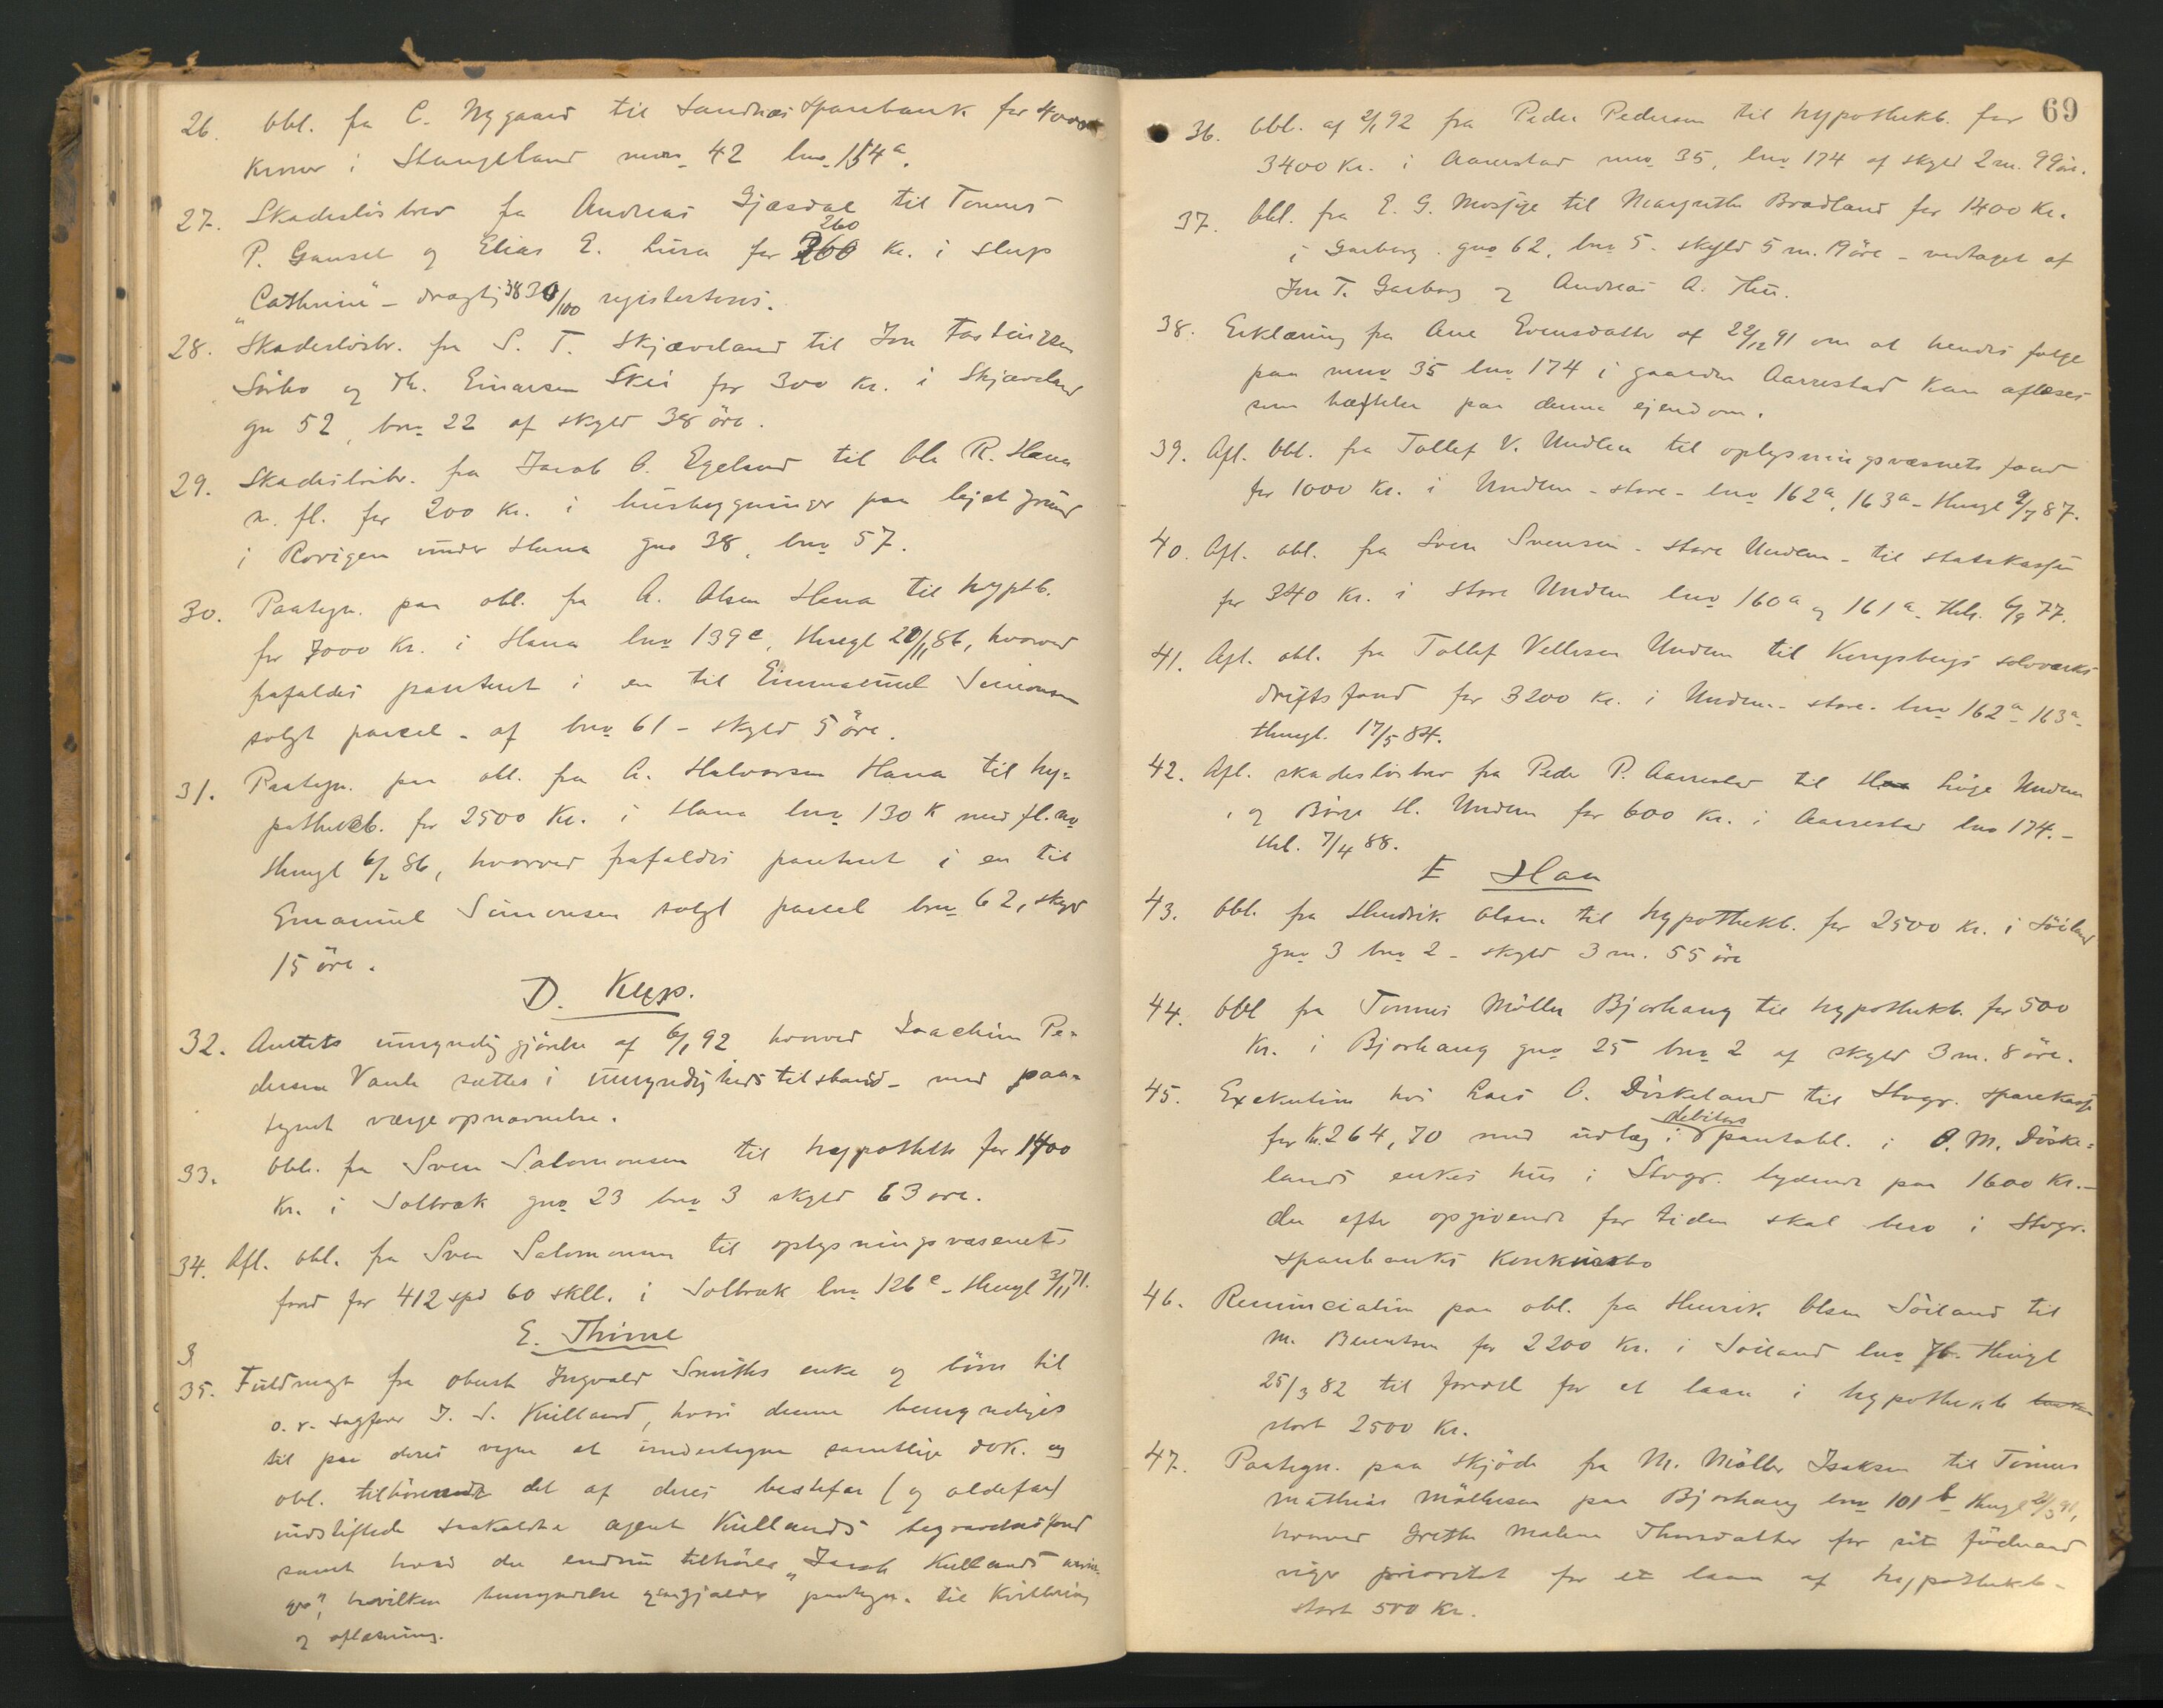 26. Obl. fra C. Nygaard til Sandnæs Sparebank for 4000
kroner i Stangeland mno 42 lno 154a.
27. Skadesløsbrev fra Andreas Gjæsdal til Tonnes
260
P. Gausel og Elias E. Lura for 360 kr. i Slup
"Cathrine" - drægtig 38 30/100 registertons.
28. Skadesløsbr. fra S. T. Skjæveland til Jon Torleivsen
Sörbo og Th. Einarsen Skei for 300 kr. i Skjæveland
gn 52, bno 22 af skyld 38 öre.
29. Skadeslösbr. fra Jacob O. Egeland til Ole R. Hana
m. fl. for 200 kr. i husbygninger paa lejet grund
i Rovigen under Hana gno 38, bno 57.
30. Paategn. paa obl. fra A. Olsen Hana til hyptb.
for 7000 kr. i Hana lno 139c, thingl 20/11 86, hvorved
frafaldes panteret i en til Emmanuel Simonsen
solgt parcel - af bno 61 - skyld 5 öre.
31. Paategn. paa obl. fra A. Halvorsen Hana til hy-
pothekb. for 2500 kr. i Hana lno 130k med fl. no
thingl 6/2 86, hvorved frafaldes panteret i en til
Emanuel Simonsen solgt parcel bno 62, skyld
15 öre.
D. Klep.
32. Amtets umyndiggjörelse af 6/1 92 hvorved Joachim Pe-
dersen Vaule sættes i umyndighedstilstand - med paa-
tegnet værgeopnævnelse.
33. Obl. fra Sven Salomonsen til hypothekb for 1400
kr. i Solbræk gno 23 bno 3 skyld 63 öre.
34. Afl. obl. fra Sven Salomonsen til oplysningsvæsenets
fond for 412 spd 60 skll. i Solbræk lno 126c - thingl 3/11 71.
E. Thime
35. Fuldmagt fra oberst Ingvald Smiths enke og börn til
o. r. sagförer J. S. Kielland, hvori denne bemyndiges
til paa deres vegne at undertegne samtlige dok. og
obl. tilhörende det af deres bestefar (og oldefar)
indstiftede saakaldte agent Kiellands begravelsesfond
samt hvad der endnu tilhörer "Jacob Kiellands arvin-
ger", hvilken bemyndelse ogsaa gjælder paategn. til kvittering
og aflæsning.
69
36. Obl. af 2/1 92 fra Peder Pedersen til hypothekb. for
3400 kr. i Aarrestad mno 35, lno 174 af skyld 2 m. 99 öre.
37. Obl. fra E. G. Mossige til Margrethe Bradland for 1400 kr.
i Garborg. gno 62, bno 5 - skyld 5 m. 19 öre - vedtaget af
Jon T. Garborg og Andreas A. Thu.
38. Erklæring fra Ane Evensdatter af 22/12 91 om at hendes folge
paa mno 35 lno 174 i gaarden Aarrestad kan aflæses
som hæftelse paa denne ejendom.
39. Afl. obl. fra Tollef V. Undem til oplysningsvæsnets fond
for 1000 kr. i Undem - store - lno 162a, 163a - thingl 9/7 87.
40. Afl. obl. fra Sven Svensen - store Undem - til statskassen
for 340 kr. i store Undem lno 160a og 161a - thl. 6/9 77.
41. Afl. obl. fra Tollef Vellesen Undem til Kongsbergs sölvværks
driftsfond for 3200 kr. i Undem - store - lno 162a - 163a -
thingl. 17/5 84.
42. Afl. skadeslösbrev fra Peder P. Aarrestad til Haa Lüge Undem
og Börge H. Undem for 600 kr. i Aarrestad lno 174. -
thl. 7/4 88.
E Haa
43. Obl. fra Hendrik Olsen til hypothekb. for 2500 kr. i Söiland
gno 3 bno 2 - skyld 3 m. 55 öre
44. Obl fra Tonnes Möller Bjorhaug til hypothekb. for 500
kr. i Bjorhaug gno 25 bno 2 af skyld 3 m. 8 öre.
45. Exekution hos Lars O. Düskeland til Stvgr. sparekasse
debitors
for kr. 264,70 med udlæg i pantobl. i O. M. Döske-
lands enkes hus i Stvgr. lydende paa 1600 kr. -
der efter opgivende for tiden skal bero i Stvgr.
sparebanks konkursbo
46. Renunciation paa obl. fra Henrik Olsen Söiland til
M. Berentsen for 2200 kr. i Söiland lno 7b - thingl
25/3 82 til fordel for et laan i hypothekb
stort 2500 kr.
47. Paategn. paa skjöde fra M. Möller Isaksen til Tönnes
Mathias Möllersen paa Bjorhaug lno 101b - thingl 21/3 91,
hvorved Grethe Malene Thorsdatter for sit föderaad
viger prioritet for et laan af hypothekb -
stort 500 kr.